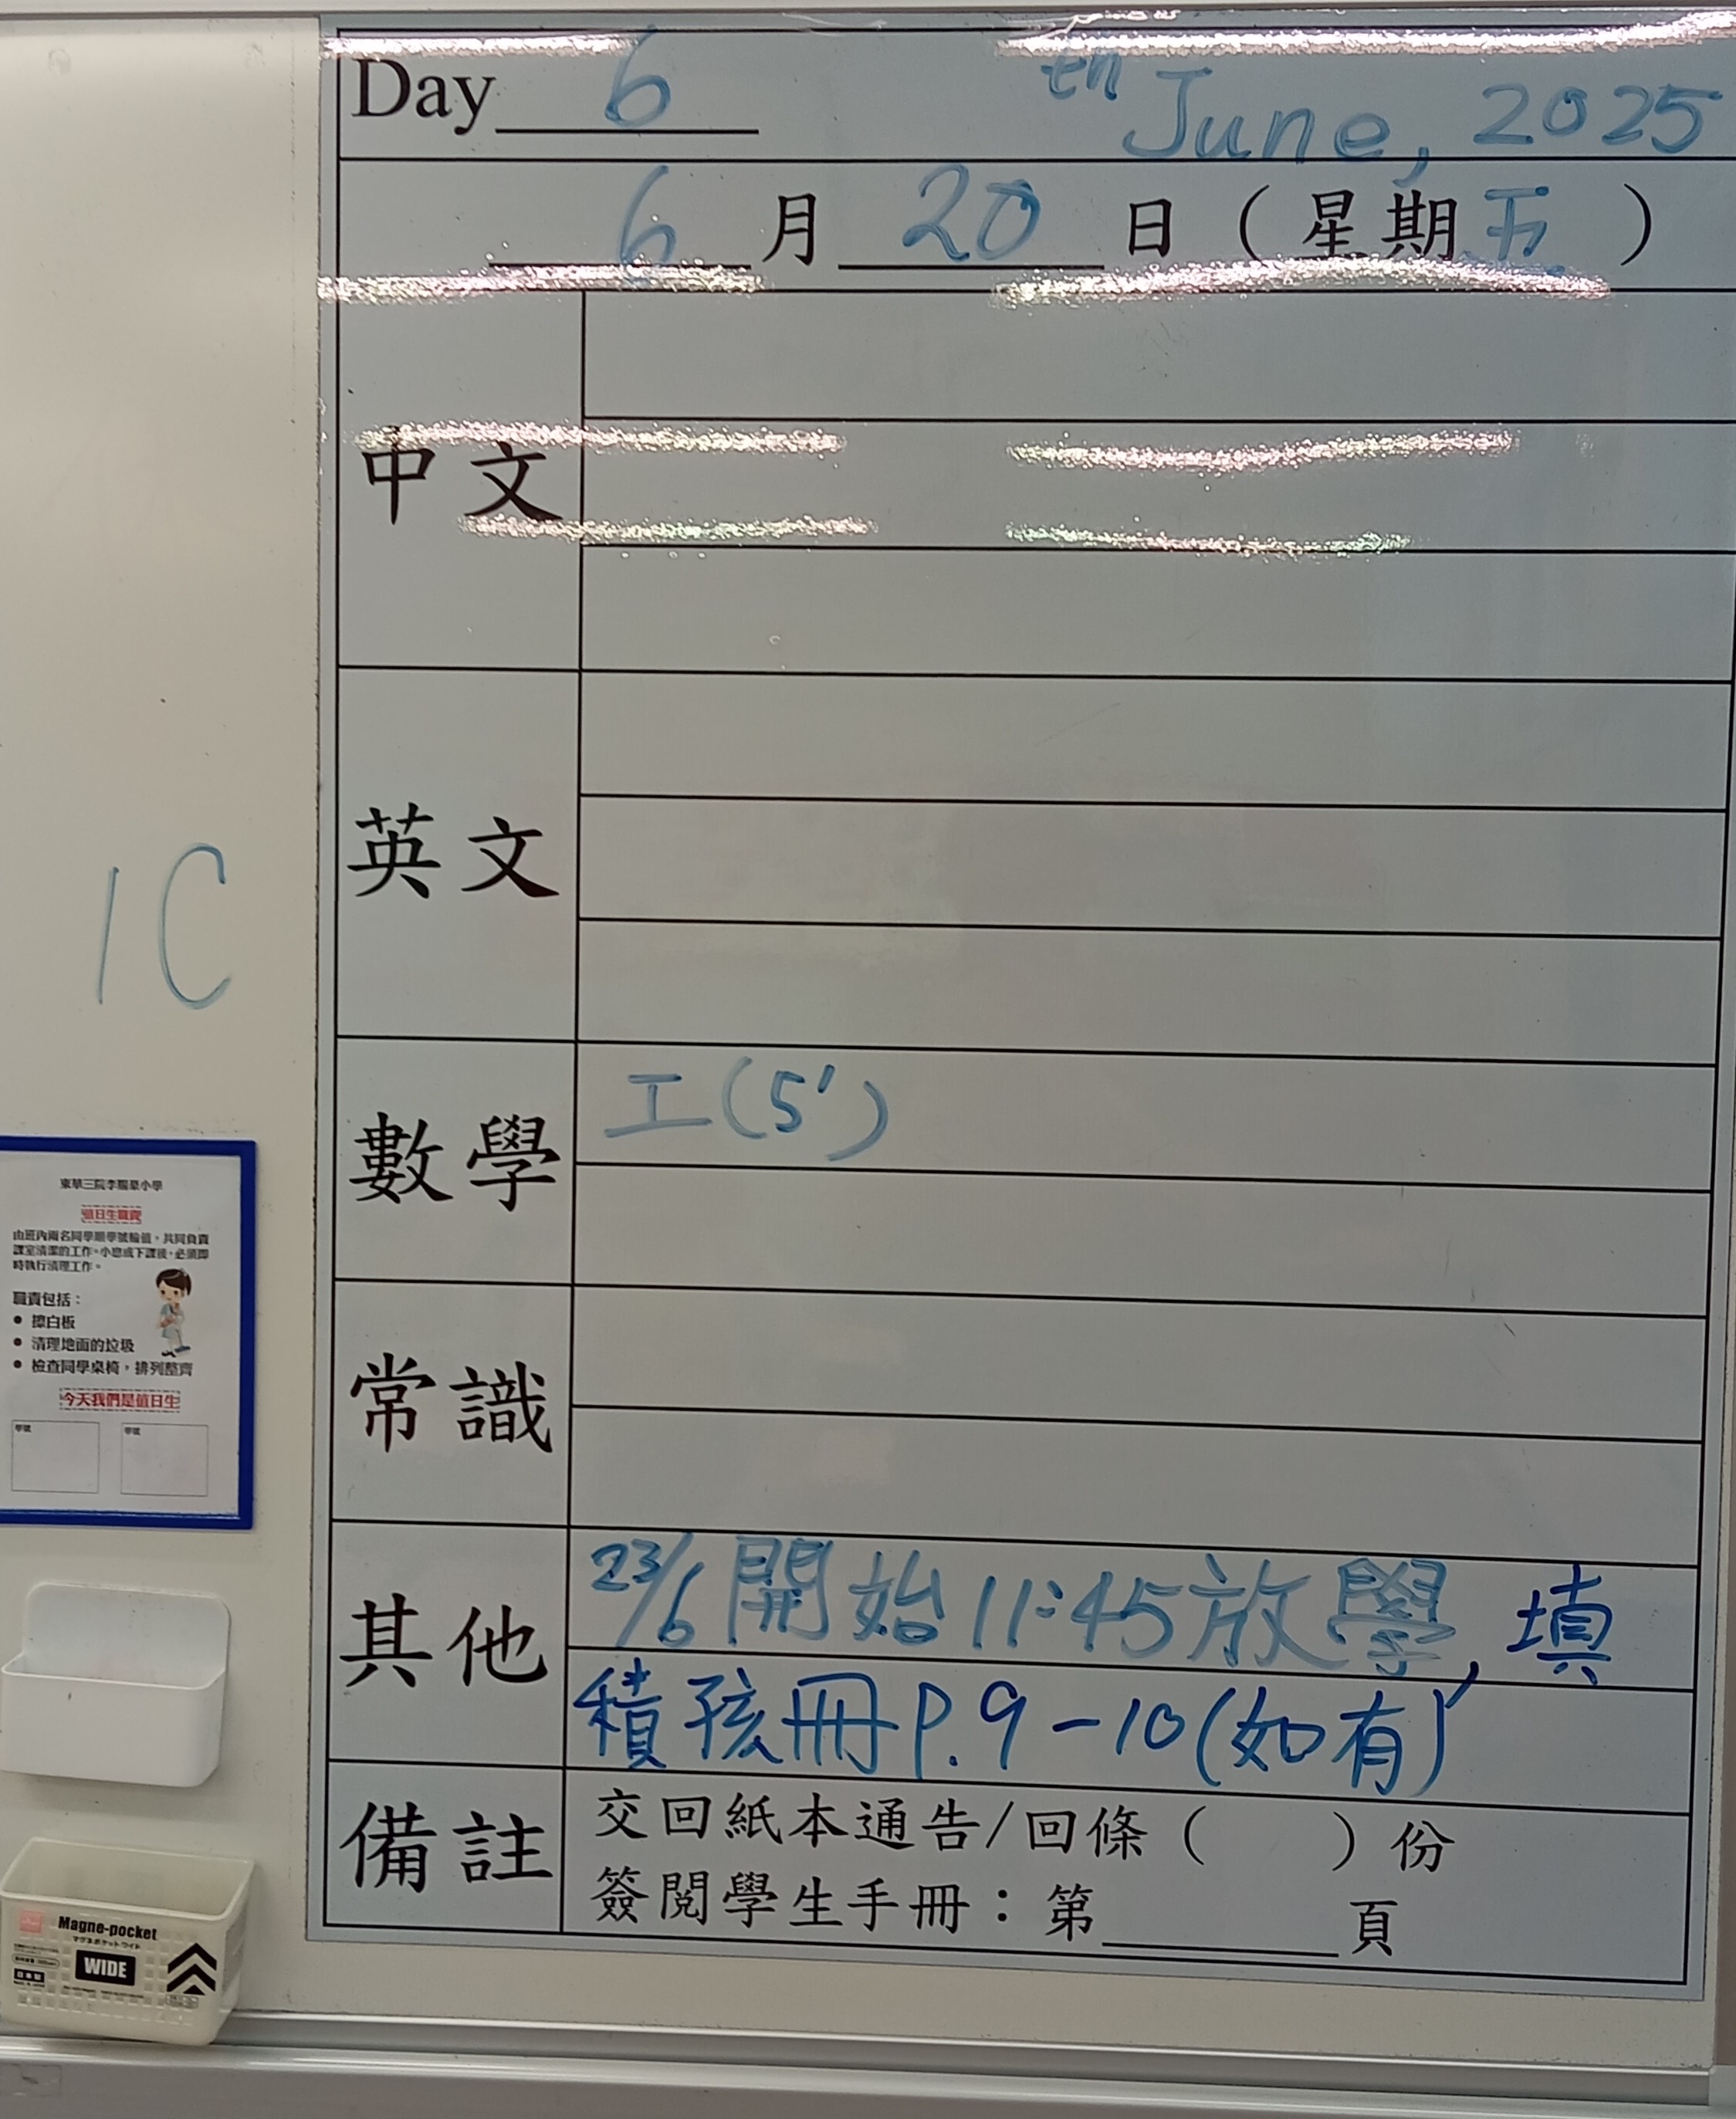 Day 6 th June, 2025
6 月 20 日 ( 星期五 )
中文
英文
1C
數學
工(5')
常識
其他
23/6 開始 11:45 放學, 填
積孩冊 P.9-10 (如有)
備註
交回紙本通告/回條 ( ) 份
簽閱學生手冊：第 頁
值日生職責
由班內兩名同學順學號輪值，共同負責
課室清潔的工作。小息或下課後，必須即
時執行清理工作。
職責包括：
• 擦白板
• 清理地面的垃圾
• 檢查同學桌椅，排列整齊
今天我們是值日生
學號 學號
Magne-pocket
マグネポケット ワイド
WIDE